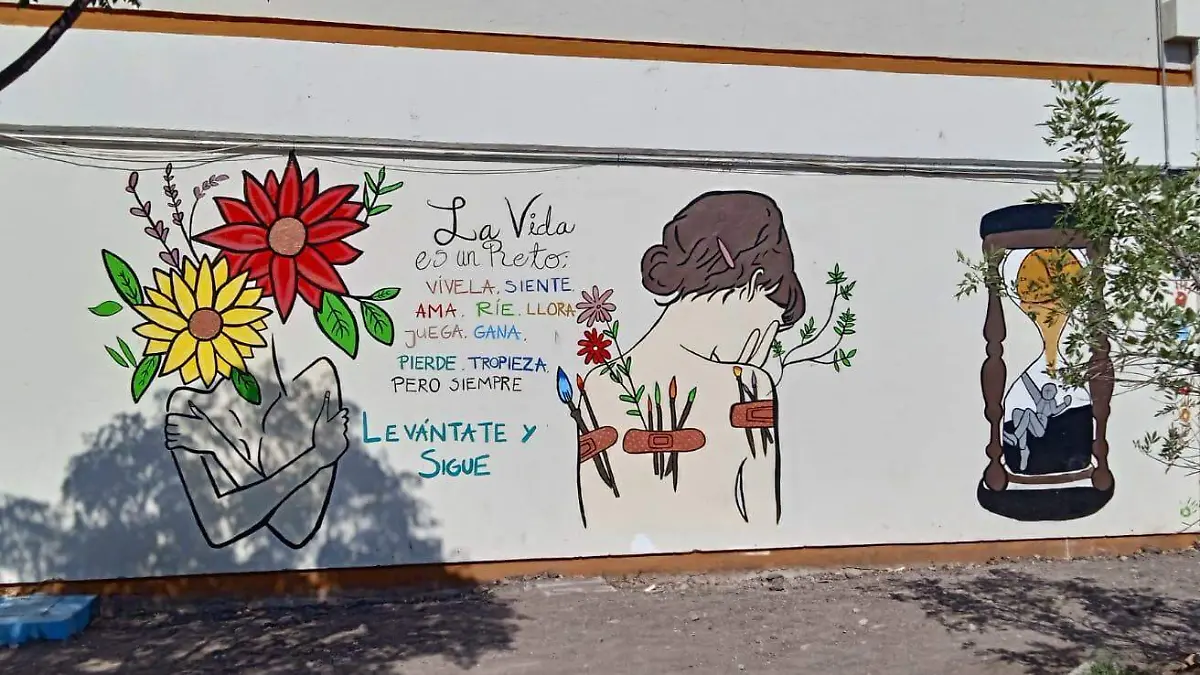 La Vida
es un Reto:
VÍVELA. SIENTE.
AMA. RÍE. LLORA
JUEGA. GANA.
PIERDE. TROPIEZA.
PERO SIEMPRE
LEVÁNTATE Y
SIGUE